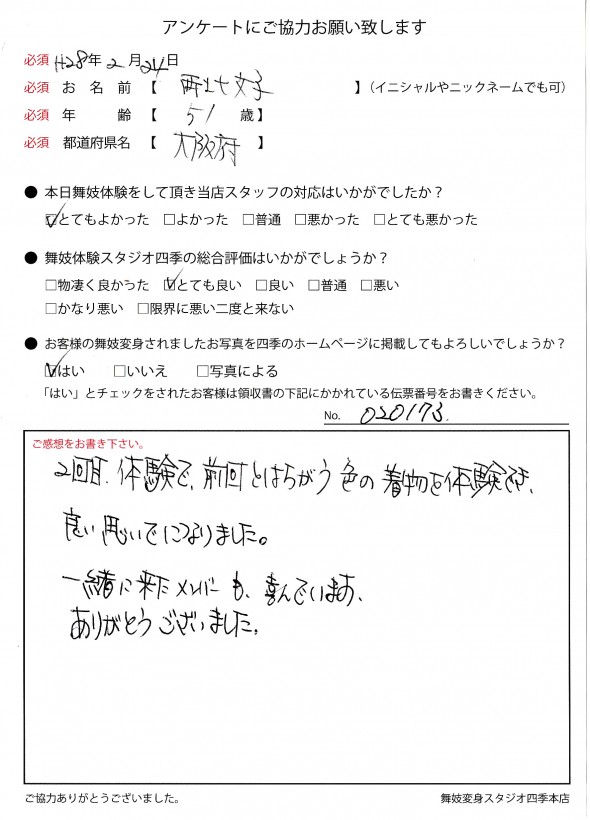 アンケートにご協力お願い致します
必須 H28年2月24日
必須 お名前【 】(イニシャルやニックネームでも可)
必須 年齢【 51 歳】
必須 都道府県名【 大阪府 】
● 本日舞妓体験をして頂き当店スタッフの対応はいかがでしたか?
☑とてもよかった □よかった □普通 □悪かった □とても悪かった
● 舞妓体験スタジオ四季の総合評価はいかがでしょうか?
□物凄く良かった ☑とても良い □良い □普通 □悪い
□かなり悪い □限界に悪い二度と来ない
● お客様の舞妓変身されましたお写真を四季のホームページに掲載してもよろしいでしょうか?
☑はい □いいえ □写真による
「はい」とチェックをされたお客様は領収書の下記にかかれている伝票番号をお書きください。
No. 020173.
ご感想をお書き下さい。
2回目、体験で、前回とはちがう色の着物を体験でき、
良い思いでになりました。
一緒に来たメンバーも、喜んでいます、
ありがとうございました。
ご協力ありがとうございました。
舞妓変身スタジオ四季本店